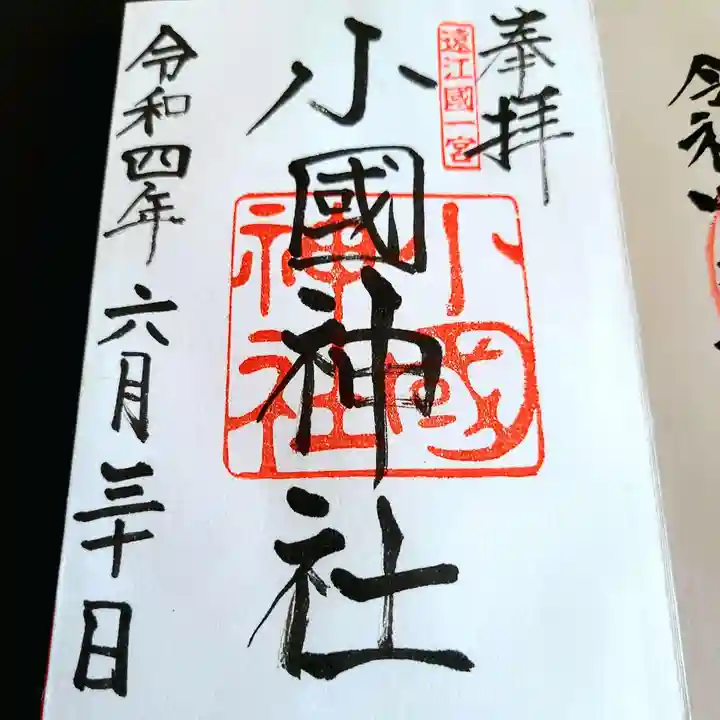 奉拝
遠江國一宮
小國神社
小國
神社
令和四年六月三十日